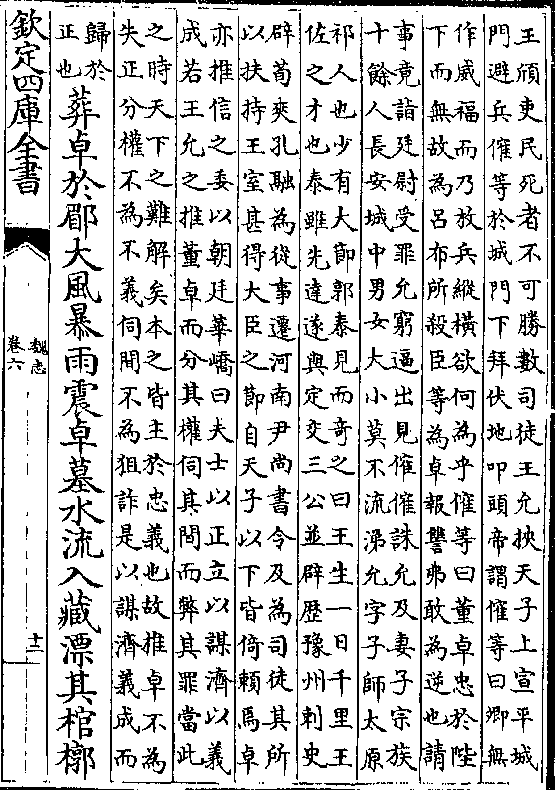 王頎吏民死者不可勝數司徒王允挾天子上宣平城
門避兵傕等於城門下拜伏地叩頭帝謂傕等曰卿無
作威福而乃放兵縱横欲何為乎傕等曰董卓忠於陛
下而無故為呂布所殺臣等為卓報讐弗敢為逆也請
事竟詣廷尉受罪允窮逼出見傕傕誅允及妻子宗族
十餘人長安城中男女大小莫不流涕允字子師太原
祁人也少有大節郭泰見而奇之曰王生一日千里王
佐之才也泰雖先達遂與定交三公並辟歴豫州刺史
辟荀爽孔融為從事遷河南尹尚書令及為司徒其所
以扶持王室甚得大臣之節自天子以下皆倚賴焉卓
亦推信之委以朝廷華嶠曰夫士以正立以謀濟以義
成若王允之推董卓而分其權伺其間而弊其罪當此
之時天下之難解矣本之皆主於忠義也故推卓不為
失正分權不為不義伺閒不為狙詐是以謀濟義成而
歸於
正也
葬卓於郿大風暴雨震卓墓水流入藏漂其棺槨
欽定四庫全書
魏志
卷六
十二